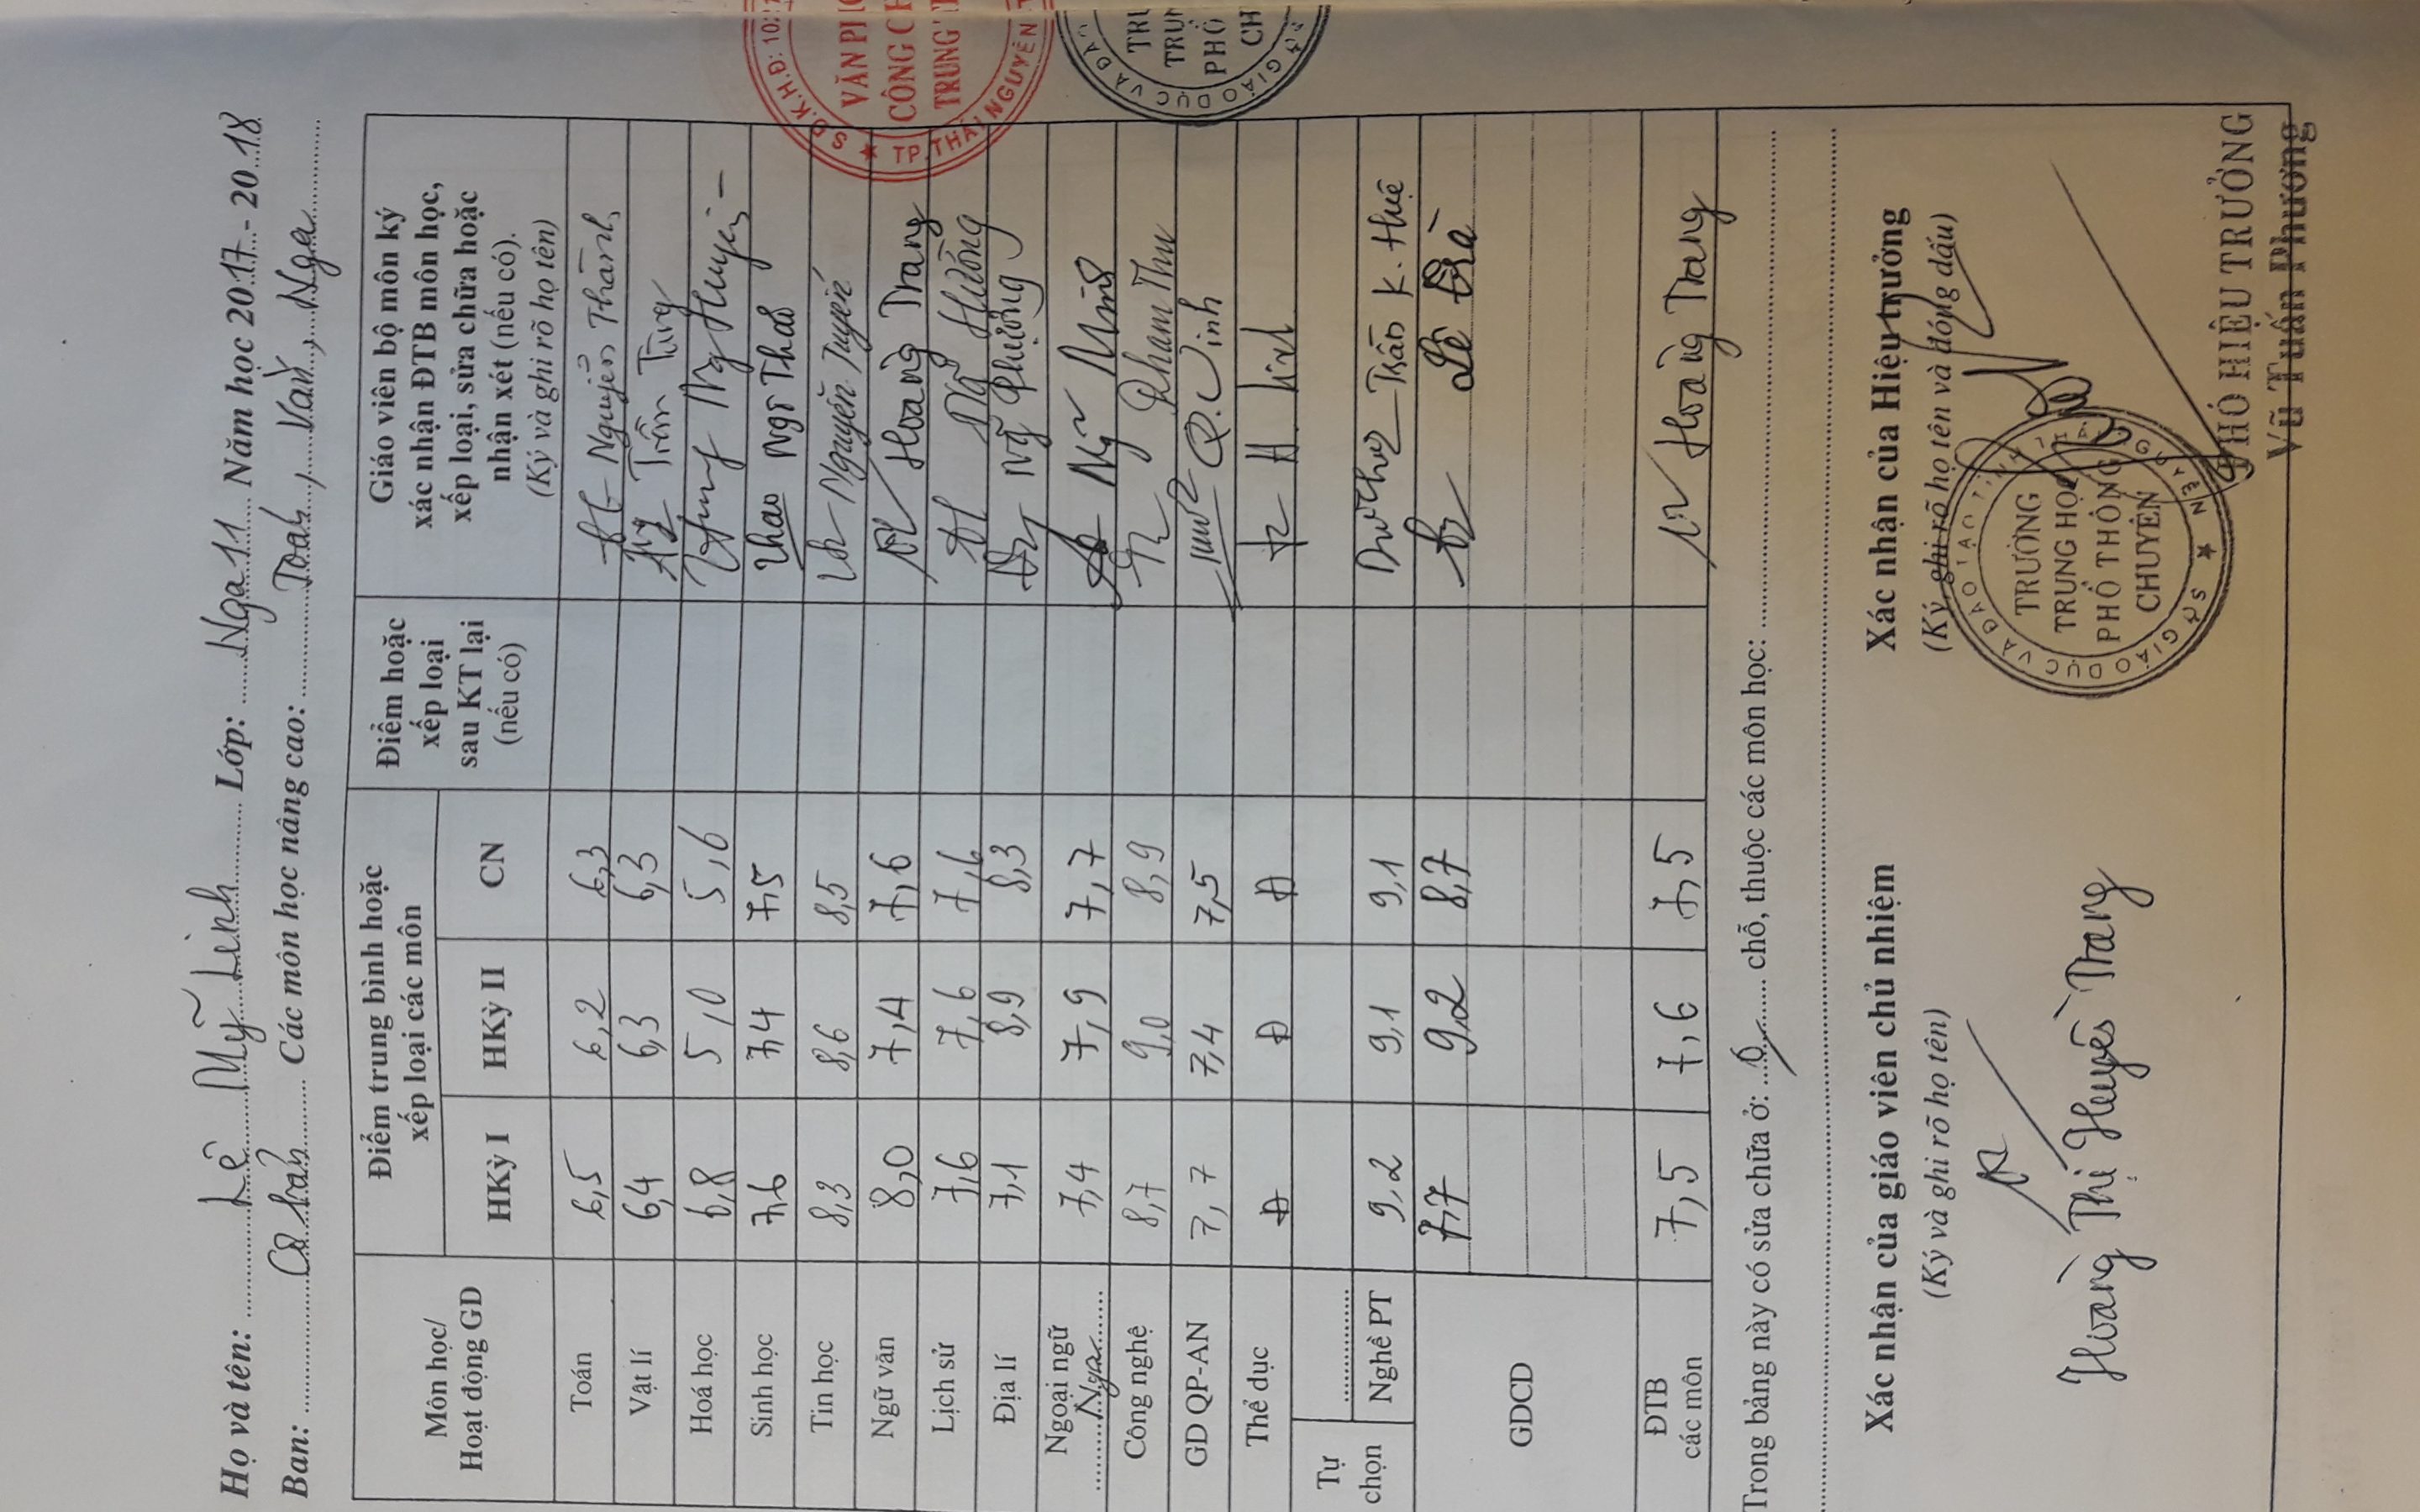 Họ và tên: Lê Mỹ Linh Lớp: Nga 11 Năm học 2017 - 2018
Ban: Cơ bản Các môn học nâng cao: Toán, Văn, Nga
Môn học/ Hoạt động GD
Điểm trung bình hoặc xếp loại các môn
Điểm hoặc xếp loại sau KT lại (nếu có)
Giáo viên bộ môn ký xác nhận ĐTB môn học, xếp loại, sửa chữa hoặc nhận xét (nếu có).
(Ký và ghi rõ họ tên)
HKỳ I HKỳ II CN
Toán 6,5 6,2 6,3 Nguyễn Thành
Vật lí 6,4 6,3 6,3 Trần Tùng
Hoá học 6,8 5,0 5,6 Ng Huyền
Sinh học 7,6 7,4 7,5 Thao Ngô Thao
Tin học 8,3 8,6 8,5 Nguyễn Tuyến
Ngữ văn 8,0 7,4 7,6 Hoàng Trang
Lịch sử 7,6 7,6 7,6 Hường
Địa lí 7,1 8,9 8,3 Ng Phượng
Ngoại ngữ Nga 7,4 7,9 7,7
Công nghệ 8,7 9,0 8,9 Pham Thu
GD QP-AN 7,7 7,4 7,5
Thể dục Đ Đ Đ
Tự chọn
Nghề PT 9,2 9,1 9,1 Trần K. Huệ
GDCD 7,7 9,2 8,7 Lê
ĐTB các môn 7,5 7,6 7,5 Hoàng Trang
Trong bảng này có sửa chữa ở: 0 chỗ, thuộc các môn học:
Xác nhận của giáo viên chủ nhiệm
(Ký và ghi rõ họ tên)
Hoàng Thị Huyền Trang
Xác nhận của Hiệu trưởng
(Ký, ghi rõ họ tên và đóng dấu)
SỞ GIÁO DỤC VÀ ĐÀO TẠO
TRƯỜNG
TRUNG HỌC
PHỔ THÔNG
CHUYÊN
PHÓ HIỆU TRƯỞNG
Vũ Tuấn Phương
S.Đ.K.H.Đ: 10
VĂN PH
CÔNG CH
TRUNG T
TP.THÁI NGUYÊN
GIÁO DỤC VÀ ĐÀ
TRƯ
TRUN
PHỔ
CH